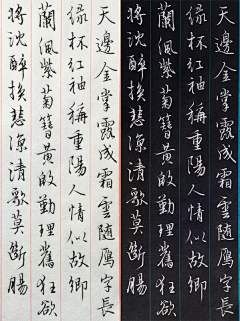 天邊金掌露成霜雲隨鴈字長
緑杯紅袖稱重陽人情似故鄉
蘭佩紫菊簪黄殷勤理舊狂欲
將沈醉換悲涼清歌莫斷腸
天邊金掌露成霜雲隨鴈字長
緑杯紅袖稱重陽人情似故鄉
蘭佩紫菊簪黄殷勤理舊狂欲
將沈醉換悲涼清歌莫斷腸